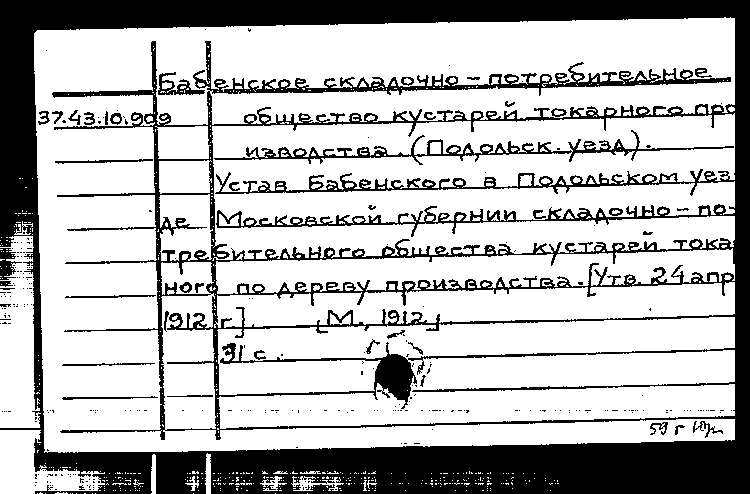 Бабенское складочно-потребительное
37.43.10.909 общество кустарей токарного про
изводства. (Подольск. уезд).
Устав Бабенского в Подольском уез
де Московской губернии складочно-по-
требительного общества кустарей тока
ного по дереву производства. [Утв. 24 апр
1912 г]. [М., 1912]
31 с.
59 г